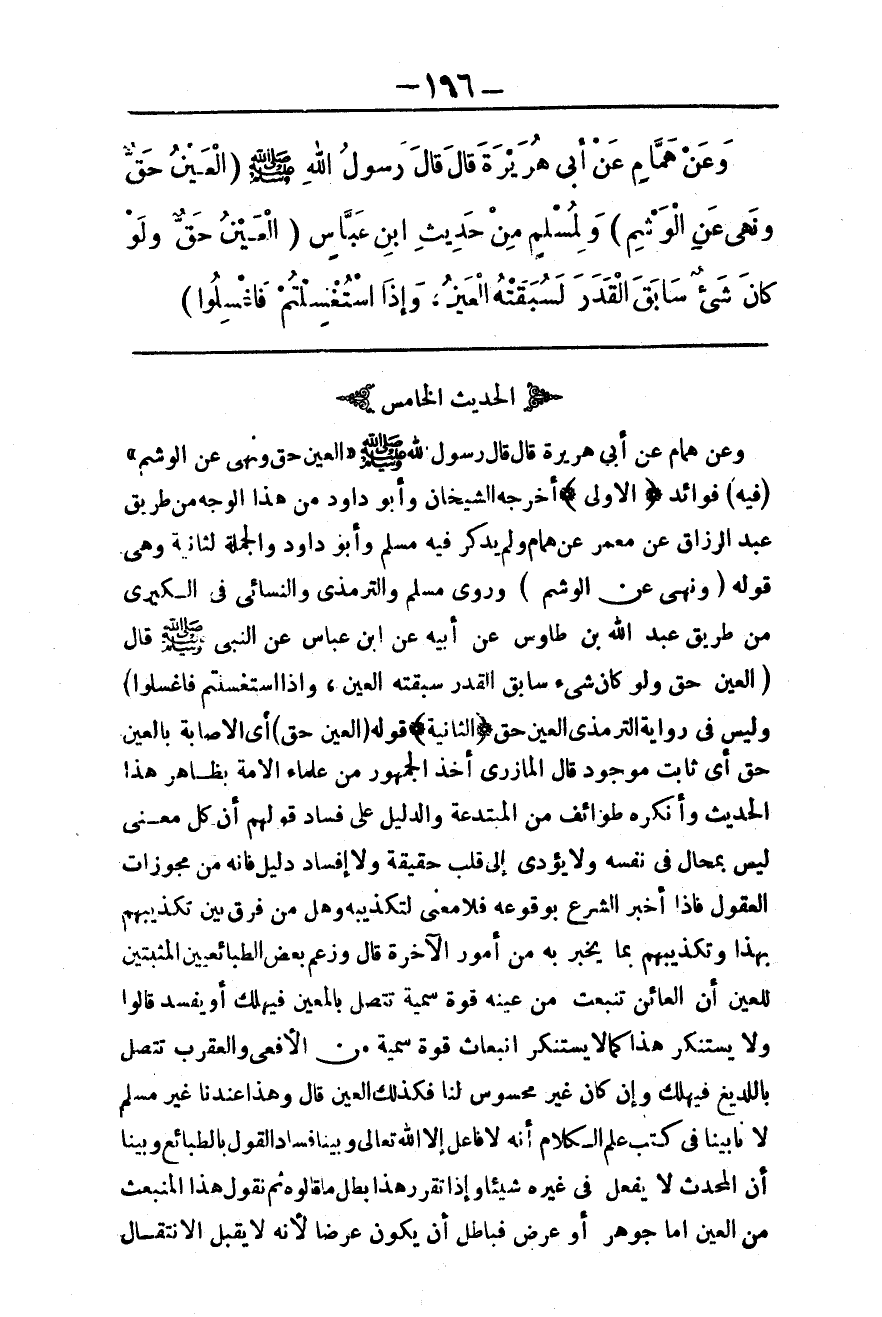 — ١٩٦ —
وَعَنْ هَمَّامٍ عَنْ أَبِى هُرَيْرَةَ قَالَ قَالَ رَسولُ اللهِ ﷺ (الْعَيْنُ حَقٌّ
ونَهَى عَنِ الْوَشْمِ) وَلِمُسْلِمٍ مِنْ حَدِيثِ ابنِ عَبَّاسٍ (الْعَيْنُ حَقٌّ ولَوْ
كانَ شَىْءٌ سَابَقَ الْقَدَرَ لَسَبَقَتْهُ الْعَيْنُ، وَإِذَا اسْتُغْسِلْتُمْ فَاغْسِلُوا)
الحديث الخامس
وعن همام عن أبي هريرة قال قال رسول لله ﷺ «العين حق ونهى عن الوشم»
(فيه) فوائد ﴿ الاولى ﴾ أخرجه الشيخان وأبو داود من هذا الوجه من طريق
عبد الرزاق عن معمر عن همام ولم يذكر فيه مسلم وأبو داود والجملة لثانية وهى
قوله (ونهى عن الوشم) وروى مسلم والترمذى والنسائى فى الكبرى
من طريق عبد الله بن طاوس عن أبيه عن ابن عباس عن النبى ﷺ قال
(العين حق ولو كان شىء سابق القدر سبقته العين ، واذا استغسلتم فاغسلوا)
وليس فى رواية الترمذى العين حق ﴿الثانية﴾ قوله (العين حق) أى الاصابة بالعين
حق أى ثابت موجود قال المازرى أخذ الجمهور من علماء الامة بظاهر هذا
الحديث وأنكره طوائف من المبتدعة والدليل على فساد قولهم أن كل معنى
ليس بمحال فى نفسه ولا يؤدى إلى قلب حقيقة ولا إفساد دليل فانه من مجوزات
العقول فاذا أخبر الشرع بوقوعه فلا معنى لتكذيبه وهل من فرق بين تكذيبهم
بهذا وتكذيبهم بما يخبر به من أمور الآخرة قال وزعم بعض الطبائعيين المثبتين
للعين أن العائن تنبعث من عينه قوة سمية تتصل بالمعين فيهلك أو يفسد قالوا
ولا يستنكر هذا كما لا يستنكر انبعاث قوة سمية من الأفعى والعقرب تتصل
باللديغ فيهلك وإن كان غير محسوس لنا فكذلك العين قال وهذا عندنا غير مسلم
لا نا بينا فى كتب علم الكلام أنه لا فاعل إلا الله تعالى وبينا فساد القول بالطبائع وبينا
أن المحدث لا يفعل فى غيره شيئا وإذا تقرر هذا بطل ما قالوه ثم نقول هذا المنبعث
من العين اما جوهر أو عرض فباطل أن يكون عرضا لأنه لا يقبل الانتقال